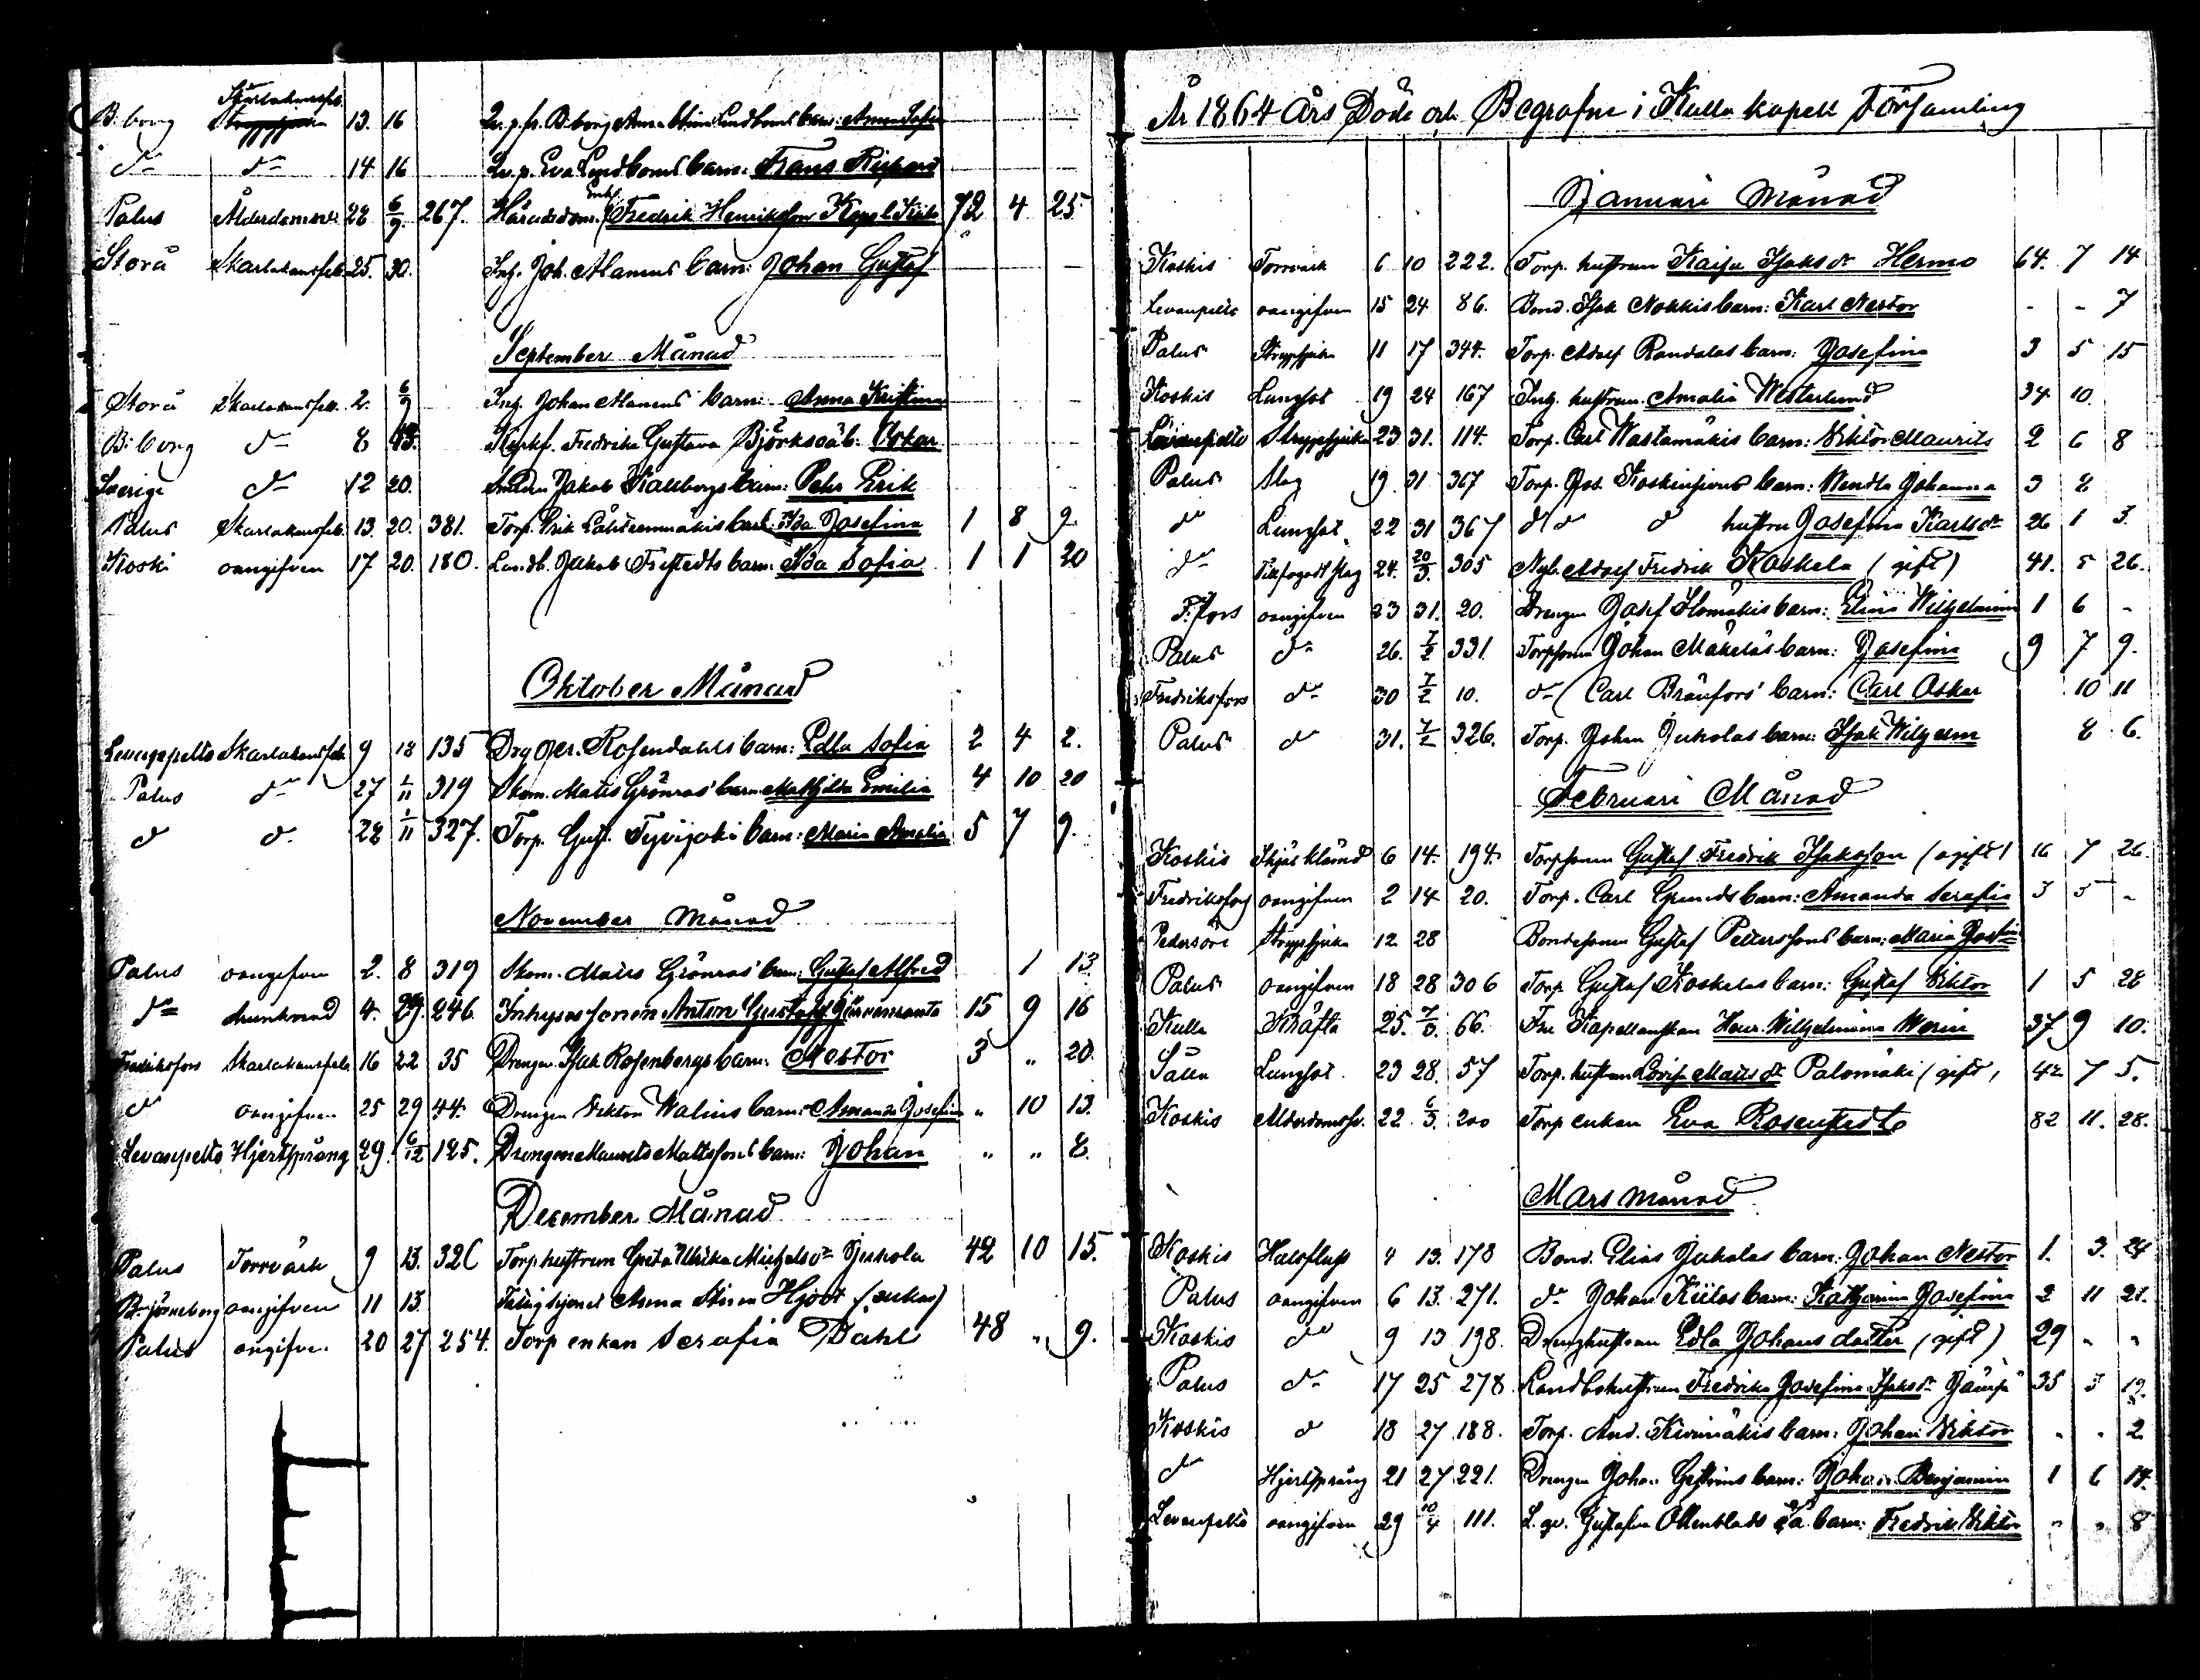 B:borg Skarlakansfeb. 13. 16 Qv. p. fr. B:borg Anna Stina Lindboms barn: Anna Sofia
do do 14 16 Qv. p. Eva Lindboms barn: Frans Rickard
Palus Ålderdomsv. 28 6/9. 267. Häradsdom. Enkl. Fredrik Henriksson 72 4 25
Storå Skarlakansfeb. 25. 30. Inh. Joh. Alanens barn: Johan Gustaf
September Månad
Storå Skarlakansfeb. 2. 6/9 Inh. Johan Alanens barn: Anna Kristina
B:borg do 8 13. Fredrika Gustava Oskar
Sverige do 12 20. Jakob Kallbergs barn: Pehr Erik
Palus Skarlakansfeb. 13. 20. 381. Torp. Erik barn: Ida Josefina 1 8 9
Koski oangifven 17 20. 180. Landb. Jakob Fristedts barn: Ida Sofia 1 1 20
Oktober Månad
Levanpelto Skarlakansfeb. 9 18 135 Rosendahls barn: Edla Sofia 2 4 2.
Palus do 27 1/11 319 Skom. Matts Grönros' barn Mathilda Emilia 4 10 20
d d. 28 1/11 327. Torp. Gust. Tyvijoki barn: Maria Amalia 5 7 9.
November Månad
Palus oangifven 2. 8 319 Skom. Matts Grönros' barn: Gustaf Alfred 1 13
do 4. 29. 246. Inhysessonen Anton Gustaf Järvenranta 15 9 16
Fredriksfors Skarlakansfeb. 16 22 35 Drengen Isak Rosenbergs barn: Nestor 3 " 20.
d oangifven 25 29 44. Drengen Viktor Walins barn: Amanda Josefina " 10 13.
Levanpelto Hjertsprång 29. 6/12 125. Drengen Maurits Mattssons barn: Johan " " 8.
December Månad
Palus Torrvärk 9 13. 326 Torp.hustrun Greta Ulrika Michelsdr Jukola 42 10 15.
Björneborg oangifven 11 13. Anna Stina Hjort (enka)
Palus oangifven 20 27 254. Torp enkan Serafia Dahl 48 " 9.
År 1864 Års Döde och Begrafne i Kulla kapell Församling
Januari Månad
Koskis Torrvärk 6 10 222. Torp. hustrun Kaisa Isaksdr Hermo 64. 7 14
Levanpelto oangifven 15 24 86. Bond. Isak Nokkis barn: Karl Nestor - - 7
Palus Strypsjuka 11 17 344. Torp. Adolf Randalas barn: Josefina 3 5 15
Koskis Lungsot 19 24 167 Inh. hustrun Amalia Westerlund 34 10.
Levanpelto Strypsjuka 23 31. 114. Torp. Carl Wastamäkis barn: Viktor Maurits 2 6 8
Palus Slag 19. 31 367 Torp. Joh. Koskinhjens barn: Wendla Johanna 3 8
do Lungsot 22 31 367 d d d hustru Josefina Karlsdr 26 1 3.
do 24. 20/3. 305 Nyb. Adolf Fredrik Koskela (gift) 41. 5 26.
F:fors oangifven 23 31. 20. Drengen Josef barn: Elina Wilhelmina 1 6 -
Palus do 26. 7/2 331. Torpsonen Johan Mäkeläs barn: Josefina 9 7 9.
Fredriksfors do 30 7/2 10. do Carl Bränfors' barn: Carl Oskar 10 11
Palus d 31. 7/2 326. Torp. Johan Jukolas barn: Isak Wilhelm 8 6.
Februari Månad
Koskis 6 14. 194. Torpsonen Gustaf Fredrik Isaksson (ogift) 16 7 26.
Fredriksfors oangifven 2 14 20. Torp. Carl Grunds barn: Amanda Serafia 3 5 -
Pedersöre Strypsjuka 12 28 Bondesonen Gustaf Petterssons barn: Maria
Palus oangifven 18 28 306 Torp Gustaf Koskelas barn: Gustaf Viktor 1 5 28
Kulla Kräfta 25. 7/3. 66. Fru Kapellanskan Henr. Wilhelmina Merin 37 9 10.
Lungsot 23 28. 57 Torp. hustrun Lovisa Mattsdr Palomäki (gift) 42 7 5.
Koskis Ålderdomsv. 22 6/3. 200 Torp enkan Eva Rosenstedt 82 11. 28.
Mars månad
Koskis Halsfluss 4 13. 178 Bond. Elias Jukolas barn: Johan Nestor 1. 3. 24
Palus oangifven 6 13. 271. do Johan Kiilas barn: Katharina Josefina 2 11 21.
Koskis do 9 13 198. Drenghustrun Edla Johans dotter (gift) 29 - -
Palus do 17 25 278. Landbohustrun Fredrika Josefina Isaksdr 35 3 19.
Koskis d 18 27 188. Torp. And. Kivimäkis barn: Johan Viktor - - 2
do Hjertsprång 21 27 221. Drengen Johan barn: Johan Benjamin 1 6 14.
Levanpelto oangifven 29 10/4 111. Gustafva Ollenblads o.ä. barn: Fredrik Viktor " " 8